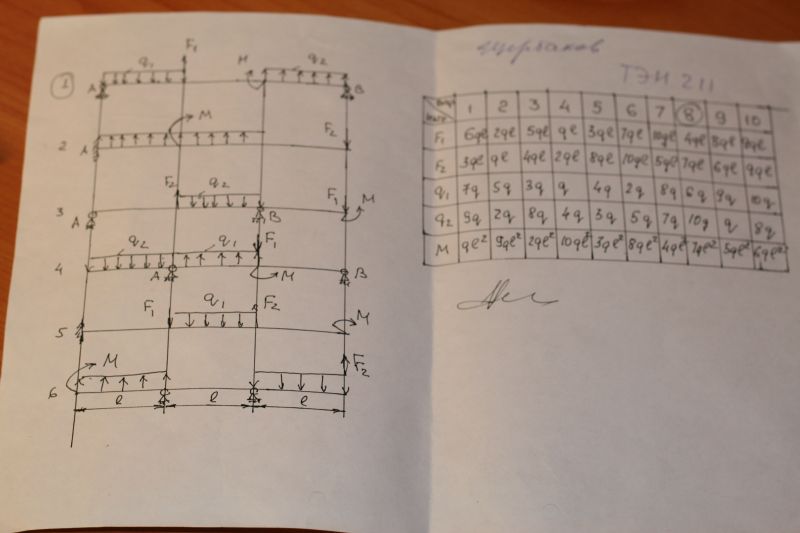 1 A q₁ F₁ M q₂ B
2 A M F₂
3 A F₂ q₂ B F₁ M
4 q₂ A q₁ F₁ M B
5 F₁ q₁ F₂ M
6 M F₂
l l l
Щербаков
ТЭН 211
1 2 3 4 5 6 7 8 9 10
F₁ 6ql 2ql 5ql ql 3ql 7ql 10ql 4ql 8ql
F₂ 3ql ql 4ql 2ql 8ql 10ql 5ql 7ql 6ql 9ql
q₁ 7q 5q 3q q 4q 2q 8q 6q 9q 10q
q₂ 9q 2q 8q 4q 3q 5q 7q 10q q 8q
M ql² 9ql² 2ql² 10ql² 3ql² 8ql² 4ql² 7ql² 5ql² 6ql²